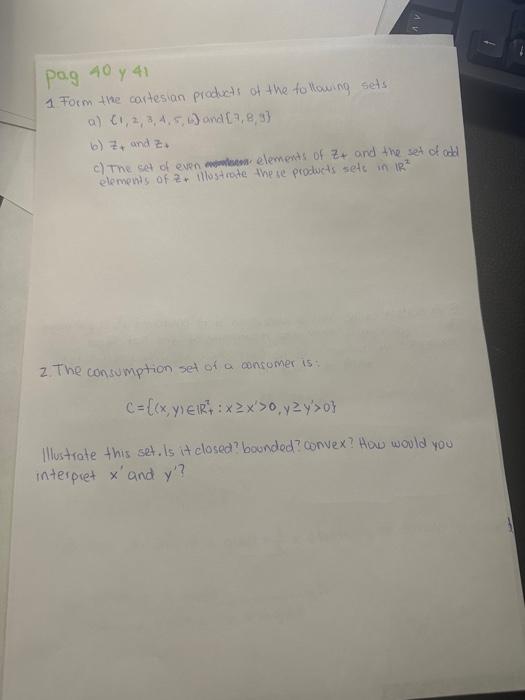 pag 40 y 41
1. Form the cartesian products of the following sets
a) {1, 2, 3, 4, 5, 6} and {7, 8, 9}
b) Z+ and Z+
c) The set of even elements of Z+ and the set of odd
elements of Z+ illustrate these products sets in IR²
2. The consumption set of a consumer is:
C={(x, y) ∈ IR²+ : x ≥ x'>0, y ≥ y'>0}
Illustrate this set. Is it closed? bounded? convex? How would you
interpret x' and y'?